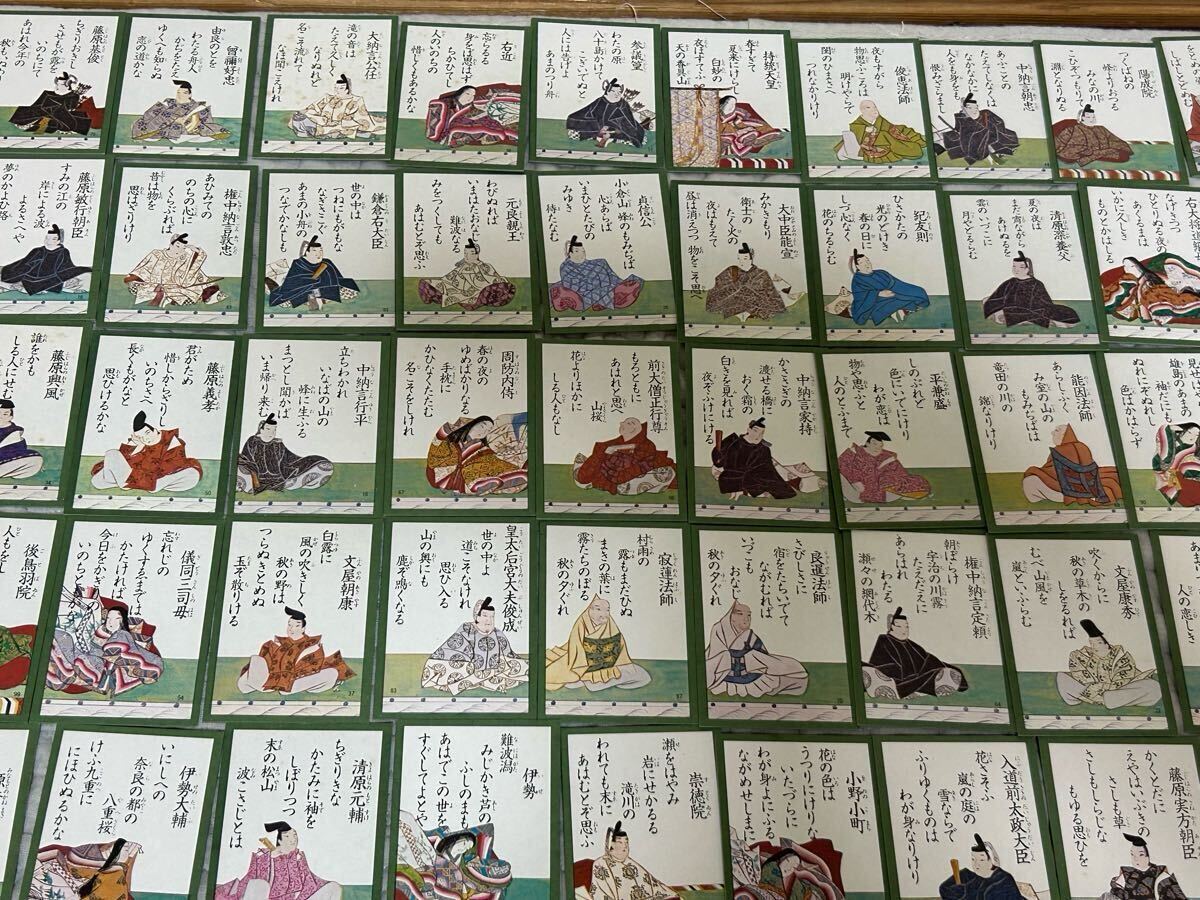 藤原基俊
ちぎりおきし
させもが露を
いのちにて
あはれ今年の
秋もいぬめり
曾禰好忠
由良のとを
わたる舟人
かぢをたえ
ゆくへも知らぬ
恋の道かな
大納言公任
滝の音は
たえて久しく
なりぬれど
名こそ流れて
なほ聞こえけれ
右近
忘らるる
身をば思はず
ちかひてし
人のいのちの
惜しくもあるかな
参議篁
わたの原
八十島かけて
こぎいでぬと
人には告げよ
あまのつり舟
持統天皇
春すぎて
夏来にけらし
白妙の
夜はすてふ
天の香具山
俊恵法師
夜もすがら
物思ふころは
明けやらで
閨のひまさへ
つれなかりけり
中納言朝忠
あふことの
たえてしなくは
なかなかに
人をも身をも
恨みざらまし
陽成院
つくばねの
峰よりおつる
みなの川
こひぞつもりて
淵となりぬる
藤原敏行朝臣
すみの江の
岸による波
よるさへや
夢のかよひ路
権中納言敦忠
あひみての
のちの心に
くらぶれば
昔は物を
思はざりけり
鎌倉右大臣
世の中は
つねにもがもな
なぎさこぐ
あまの小舟の
つなでかなしも
元良親王
わびぬれば
いまはたおなじ
難波なる
みをつくしても
あはむとぞ思ふ
貞信公
小倉山 峰のもみぢば
心あらば
いまひとたびの
みゆき
待たなむ
大中臣能宣
みかきもり
衛士の
たく火の
夜はもえて
昼は消えつつ 物をこそ思へ
紀友則
ひさかたの
光のどけき
春の日に
しづ心なく
花のちるらむ
清原深養父
夏の夜は
まだ宵ながら
あけぬるを
雲のいづこに
月やどるらむ
右大将道綱母
なげきつつ
ひとりぬる夜の
あくるまは
いかに久しき
藤原興風
誰をかも
しる人にせむ
34
藤原義孝
君がため
惜しからざりし
いのちさへ
長くもがなと
思ひけるかな
50
中納言行平
立ちわかれ
いなばの山の
峰に生ふる
まつとし聞かば
いま帰り来む
16
周防内侍
春の夜の
ゆめばかりなる
手枕に
かひなくたたむ
名こそをしけれ
67
前大僧正行尊
もろともに
あはれと思へ
山桜
花よりほかに
しる人もなし
中納言家持
かささぎの
渡せる橋に
おく霜の
白きを見れば
夜ぞふけにける
平兼盛
しのぶれど
色にいでにけり
わが恋は
物や思ふと
人のとふまで
40
能因法師
あらしふく
み室の山の
もみぢばは
竜田の川の
錦なりけり
雄島のあまの
袖だにも
ぬれにぞぬれし
色はかはらず
90
後鳥羽院
人もをし
99
儀同三司母
忘れじの
ゆくすゑまでは
かたければ
今日をかぎりの
いのちともがな
54
文屋朝康
白露に
風の吹きしく
秋の野は
つらぬきとめぬ
玉ぞ散りける
37
皇太后宮大夫俊成
世の中よ
道こそなけれ
思ひ入る
山の奥にも
鹿ぞ鳴くなる
83
寂蓮法師
村雨の
露もまだひぬ
まきの葉に
霧たちのぼる
秋の夕ぐれ
87
良暹法師
さびしさに
宿をたちいでて
ながむれば
いづこも
おなじ
秋の夕ぐれ
権中納言定頼
朝ぼらけ
宇治の川霧
たえだえに
あらはれ
わたる
瀬々の網代木
64
文屋康秀
吹くからに
秋の草木の
しをるれば
むべ山風を
嵐といふらむ
伊勢大輔
いにしへの
奈良の都の
八重桜
けふ九重に
にほひぬるかな
清原元輔
ちぎりきな
かたみに袖を
しぼりつつ
末の松山
波こさじとは
伊勢
難波潟
みじかき芦の
ふしのまも
あはでこの世を
すぐしてよとや
崇徳院
瀬をはやみ
岩にせかるる
滝川の
われても末に
あはむとぞ思ふ
小野小町
花の色は
うつりにけりな
いたづらに
わが身よにふる
ながめせしまに
入道前太政大臣
花さそふ
嵐の庭の
雪ならで
ふりゆくものは
わが身なりけり
藤原実方朝臣
かくとだに
えやはいぶきの
さしも草
さしもしらじな
もゆる思ひを